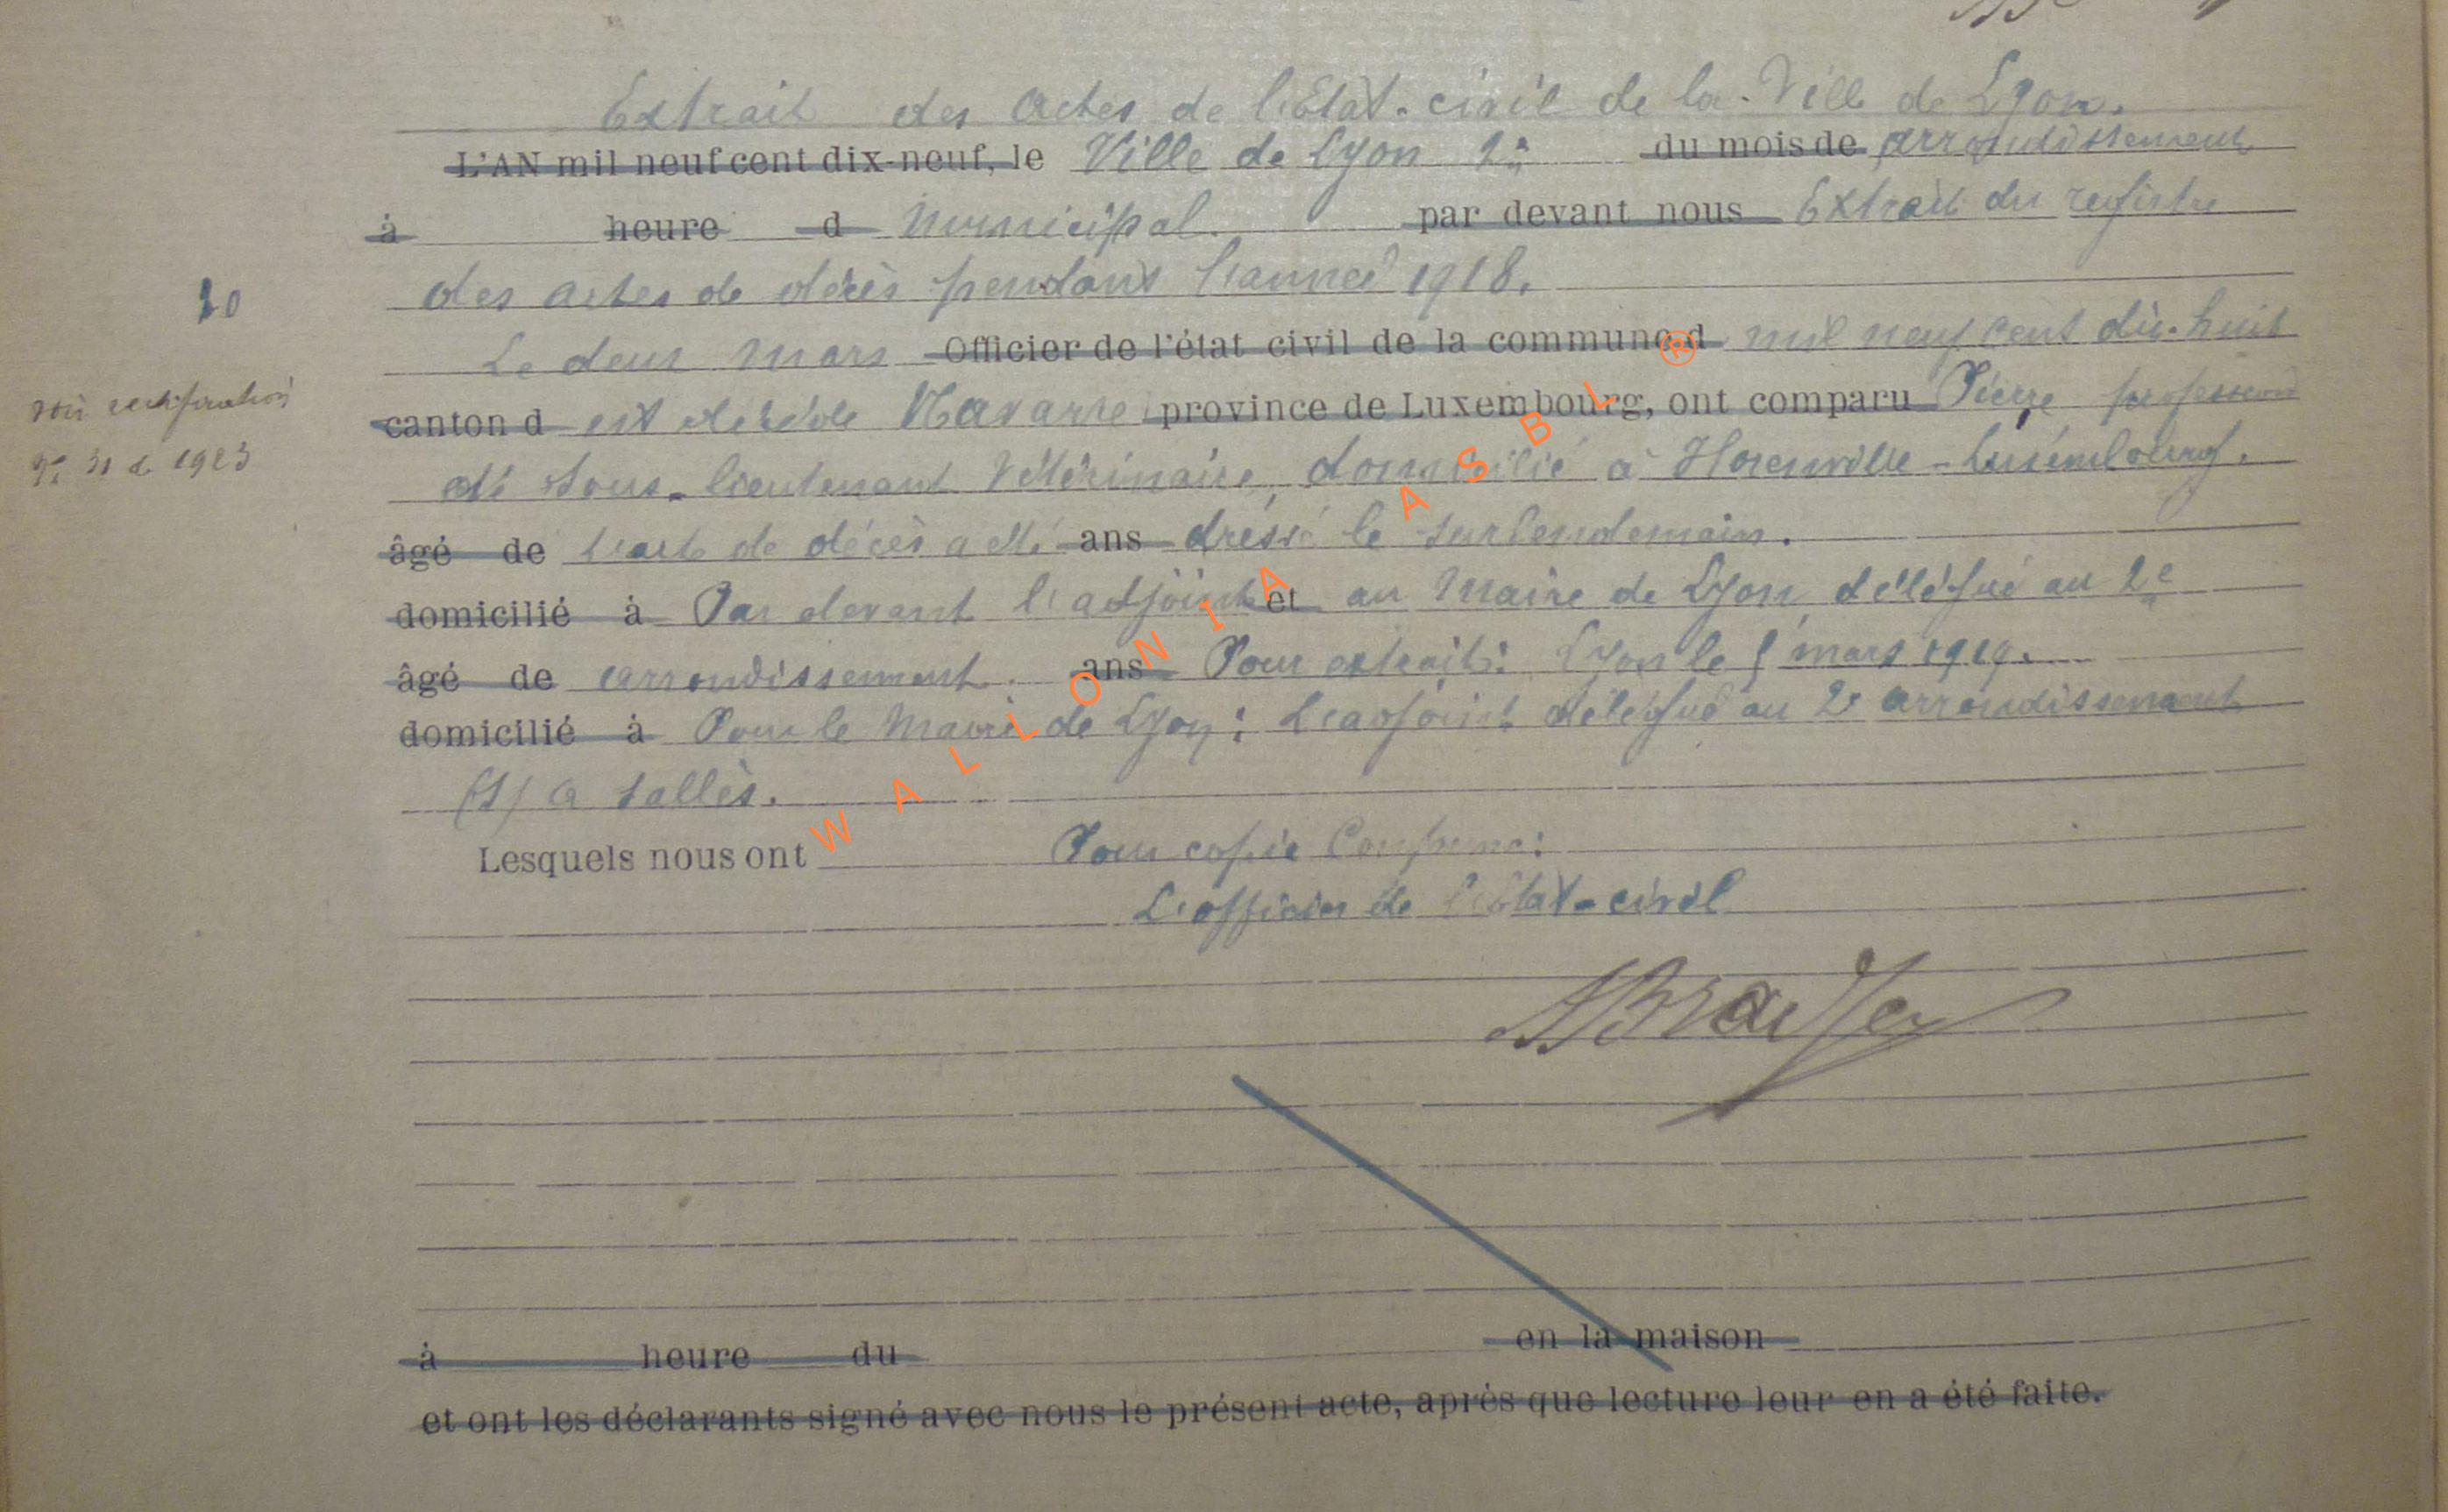 Extrait des Actes de l'Etat-civil de la Ville de Lyon.
L'AN mil neuf cent dix-neuf, le Ville de Lyon 2e du mois de arrondissement
à heure d Municipal. par devant nous Extrait du registre
des actes de décès pendant l'année 1918.
10
Le deux mars Officier de l'état civil de la commune d mil neuf cent dix-huit
voir rectification
canton d est décédé Navarre province de Luxembourg, ont comparu Pierre profession
31 de 1923
de Sous-lieutenant Vétérinaire, domicilié à Horenville-Luxembourg.
âgé de L'acte de décès a été ans dressé le surlendemain.
domicilié à Par devant l'adjoint et au Maire de Lyon délégué au 2e
âgé de arrondissement. ans Pour extrait: Lyon le mars 1919.
domicilié à Pour le Maire de Lyon: L'adjoint délégué au 2e arrondissement
(S) a Sallès.
Lesquels nous ont Pour copie Conforme:
L'officier de l'Etat-civil
à heure du en la maison
et ont les déclarants signé avec nous le présent acte, après que lecture leur en a été faite.
WALLONIA ASBL ®